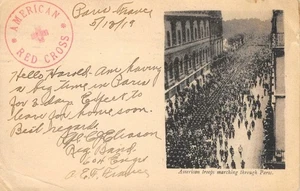 AMERICAN
RED CROSS
Paris, France
5/18/19
Hello Harold - Am having
a big time in Paris
for 3 days. Expect to
leave for home soon.
Best regards
Gleason
Big Band
Engrs
A.E.F. France
American troops marching through Paris.